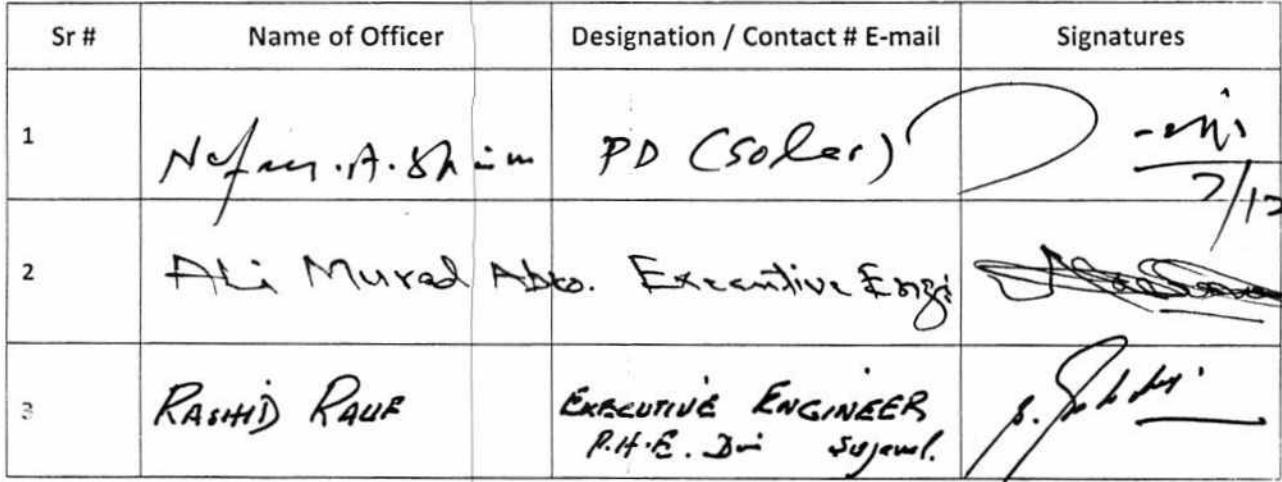 Sr # Name of Officer Designation / Contact # E-mail Signatures
1 .A. PD (Solar) 7/12
2 Ali Murad Executive Engi
3 RASHID RAUF EXECUTIVE ENGINEER
P.H.E. Sujawal.